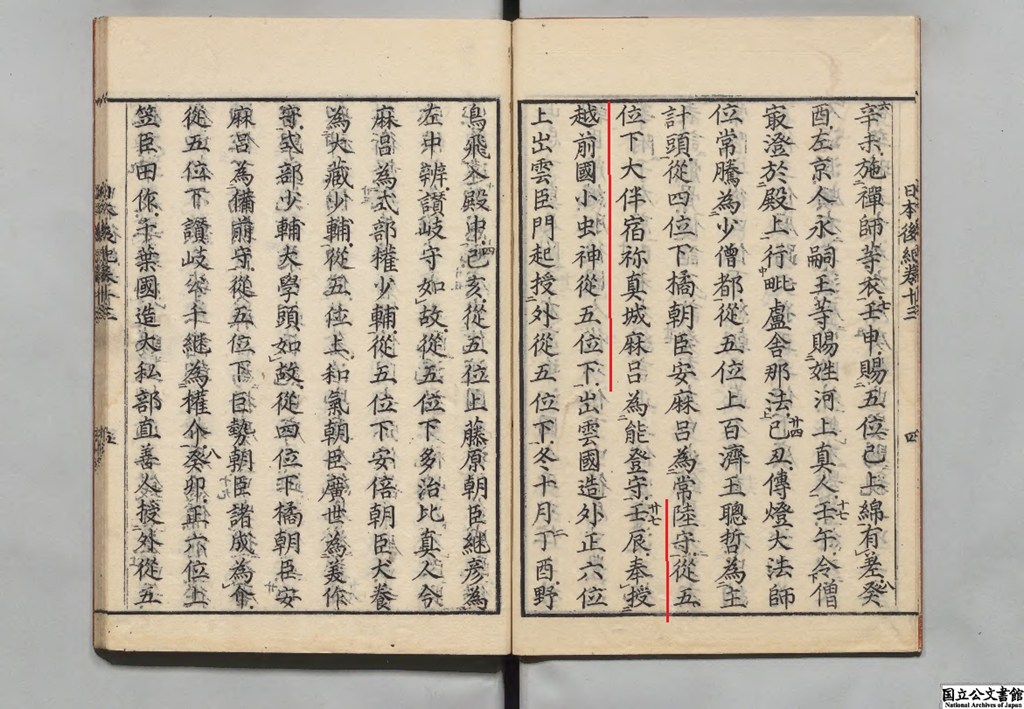 辛未施禪師等衣壬申賜五位已上綿有差癸
酉左京人永嗣王等賜姓河上真人壬午令僧
最澄於殿上行毗盧舍那法己丑傳燈大法師
位常騰為少僧都從五位上百濟王聰哲為主
計頭從四位下橘朝臣安麻呂為常陸守從五
位下大伴宿祢真城麻呂為能登守壬辰奉授
越前國小虫神從五位下出雲國造外正六位
上出雲臣門起授外從五位下冬十月丁酉野
日本後紀卷十三
四
鳥飛入殿中己亥從五位上藤原朝臣継彦為
左中辨讃岐守如故從五位下多治比真人今
麻呂為式部權少輔從五位下安倍朝臣犬養
為大藏少輔從五位上和氣朝臣廣世為美作
守式部少輔大學頭如故從四位下橘朝臣安
麻呂為備前守從五位下巨勢朝臣諸成為介
從五位下讃岐公千継為權介癸卯正六位上
笠臣田作千葉國造大私部直善人授外從五
国立公文書館
National Archives of Japan